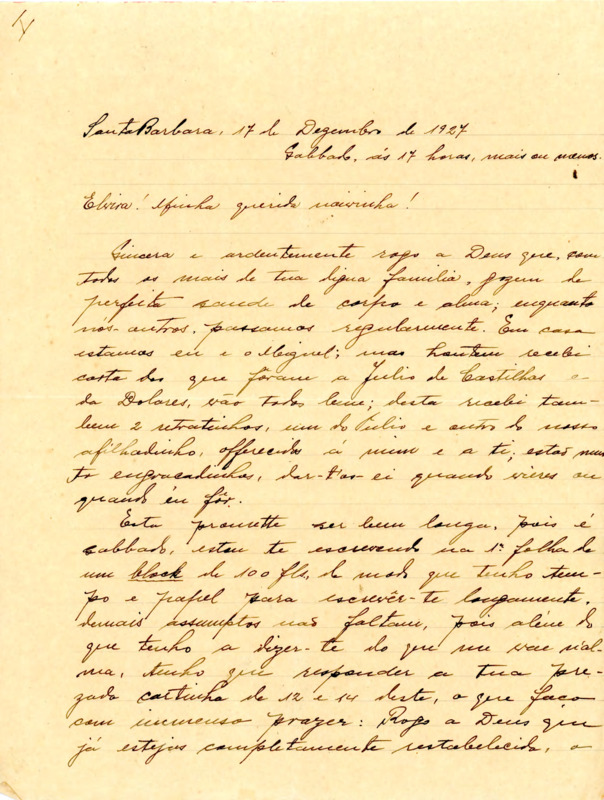 Santa Barbara, 17 de Dezembro de 1927
Sabbado, ás 17 horas, mais ou menos.
Elvira! Minha querida noivinha!
Sincera e ardentemente rogo a Deus que, com
todos os mais de tua digna familia, gozem de
perfeita saude de corpo e alma; enquanto
nós-outros, passamos regularmente. Em casa
estamos eu e o Miguel; mas hontem recebi
carta dos que fôram a Julio de Castilhos e
da Dolores, vão todos bem; desta recebi tam-
bem 2 retratinhos, um do Tulio e outro do nosso
afilhadinho, offerecidos á mim e a ti; estão mui-
to engraçadinhos, dar-t'os-ei quando vieres ou
quando eu fôr.
Esta promette ser bem longa, pois é
sabbado, estou te escrevendo na 1ª folha de
um block de 100 fls, de modo que tenho tem-
po e papel para escrevêr-te longamente,
demais assumptos não faltam, pois além do
que tenho a dizer-te do que me vae n'al-
ma, tenho que responder a tua pre-
zada cartinha de 12 e 14 deste, o que faço
com immenso prazer: Rogo a Deus que
já estejas completamente restabelecida, o